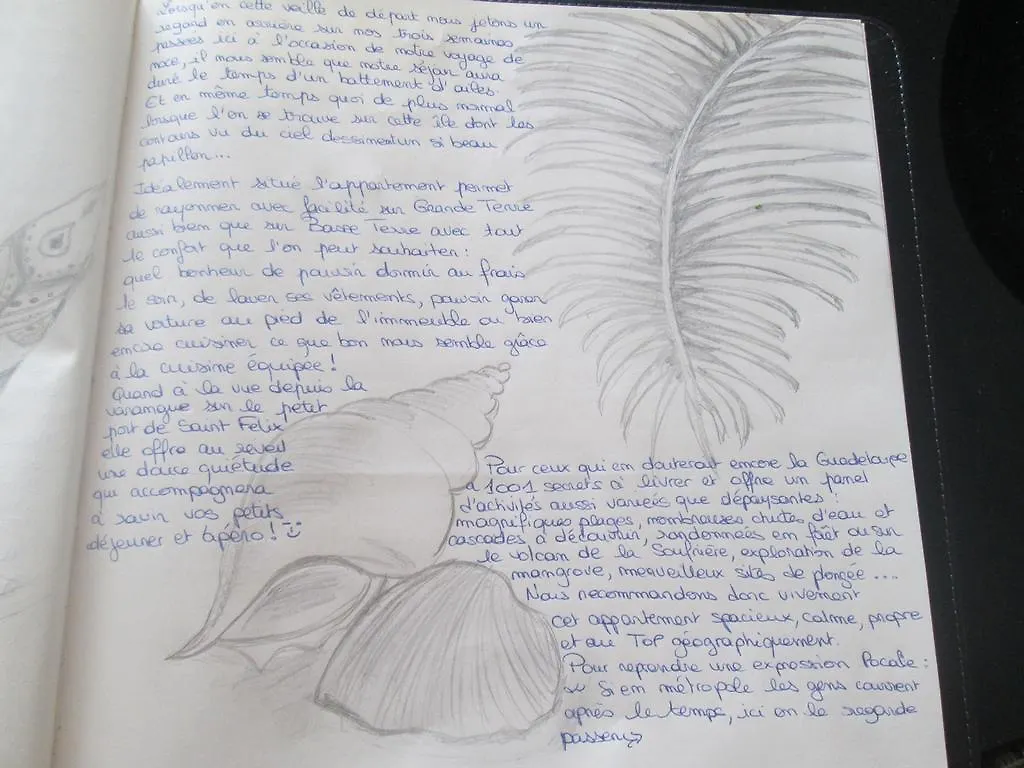 Lorsqu'en cette veille de départ nous jetons un
regard en arrière sur nos trois semaines
passées ici à l'occasion de notre voyage de
noce, il nous semble que notre séjour aura
duré le temps d'un battement d'ailes.
Et en même temps quoi de plus normal
lorsque l'on se trouve sur cette île dont les
contours vu du ciel dessinent un si beau
papillon...
Idéalement situé l'appartement permet
de rayonner avec facilité sur Grande Terre
aussi bien que sur Basse Terre avec tout
le confort que l'on peut souhaiter :
quel bonheur de pouvoir dormir au frais
le soir, de laver ses vêtements, pouvoir garer
sa voiture au pied de l'immeuble ou bien
encore cuisiner ce que bon nous semble grâce
à la cuisine équipée !
Quand à la vue depuis la
varangue sur le petit
port de Saint Felix
elle offre au reveil
une douce quiétude
qui accompagnera
à ravir vos petits
déjeuner et apéro ! :)
Pour ceux qui en douterait encore la Guadeloupe
a 1001 secrets à livrer et offre un panel
d'activités aussi variées que dépaysantes :
magnifiques plages, nombreuses chutes d'eau et
cascades à découvrir, randonnées en forêt ou sur
le volcan de la Soufrière, exploration de la
mangrove, merveilleux sites de plongée ...
Nous recommandons donc vivement
cet appartement spacieux, calme, propre
et au TOP géographiquement.
Pour reprendre une expression locale :
« Si en métropole les gens courent
après le temps, ici on le regarde
passer »